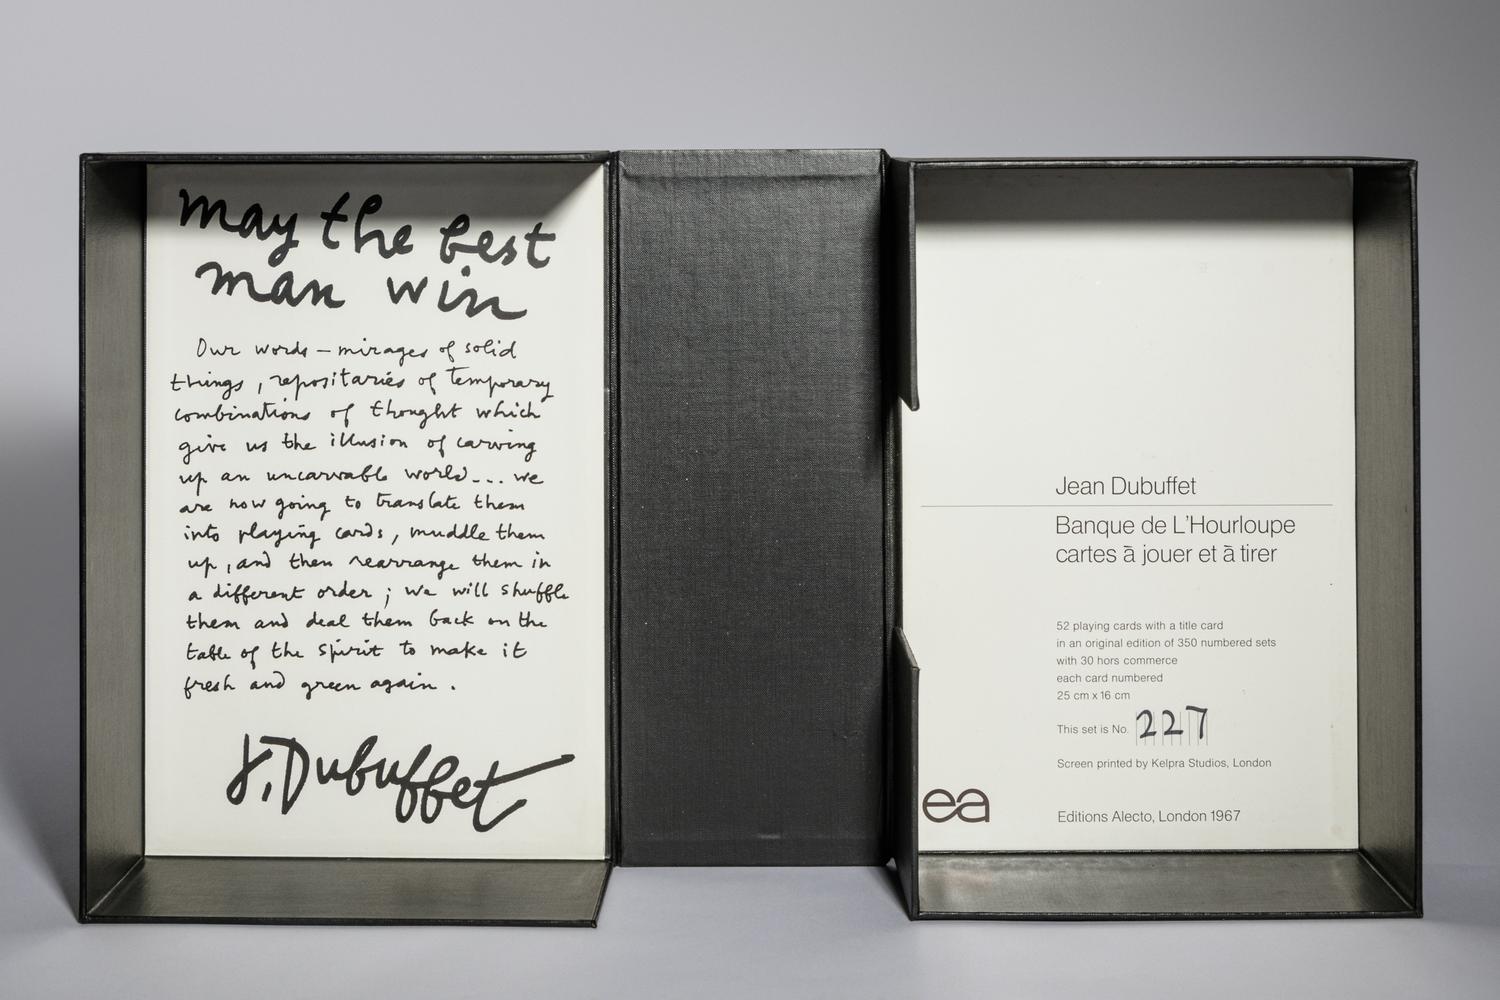 may the best
man win
Our words – mirages of solid
things, repositaries of temporary
combinations of thought which
give us the illusion of carving
up an uncarvable world... we
are now going to translate them
into playing cards, muddle them
up, and then rearrange them in
a different order; we will shuffle
them and deal them back on the
table of the spirit to make it
fresh and green again.
J. Dubuffet
Jean Dubuffet
Banque de L'Hourloupe
cartes ā jouer et ā tirer
52 playing cards with a title card
in an original edition of 350 numbered sets
with 30 hors commerce
each card numbered
25 cm x 16 cm
This set is No. 227
Screen printed by Kelpra Studios, London
ea
Editions Alecto, London 1967